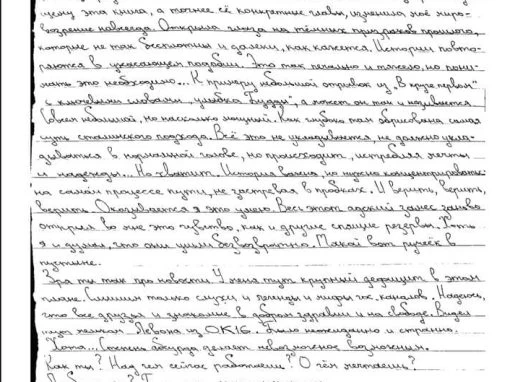 цену эта книга, а точнее её конкретные главы, изменила моё миро-
воззрение навсегда. Открыла глаза на тёмных призраков прошлого,
которые не так бесплотны и далеки, как кажется. Истории повто-
ряются в ужасающем подобии. Это так печально и тяжело, но пони-
мать это необходимо... К примеру небольшой отрывок из "В круге первом"
с ключевыми словами "улыбка Будды", а может он так и называется.
Совсем небольшой, но насколько мощный. Как глубоко там сама
суть сталинского подхода. Всё это не укладывается, не должно укла-
дываться в нормальной голове, но происходит, истребляя мечты
и надежды. Но хватит. История важна, но нужно концентрироваться
на самом процессе пути, не застревая в пробках. И верить, верить,
верить. Оказывается я это умею. Весь этот адский занес заново
открыл во мне это чувство, как и другие спящие резервы. Хоть
я и думал, что они ушли безвозвратно. Такой вот ручеёк в
пустыне.
Зря ты так про новости. У меня тут крупный дефицит в этом
плане. Слышим только слухи и легенды и мифы гос. каналов. Надеюсь,
что все друзья и знакомые в добром здравии и на свободе. Видел
Левона из ОК16. Было неожиданно и странно.
Хотя... Степень абсурда делает невозможное возможным.
Как ты? Над чем сейчас работаешь? О чём мечтаешь?